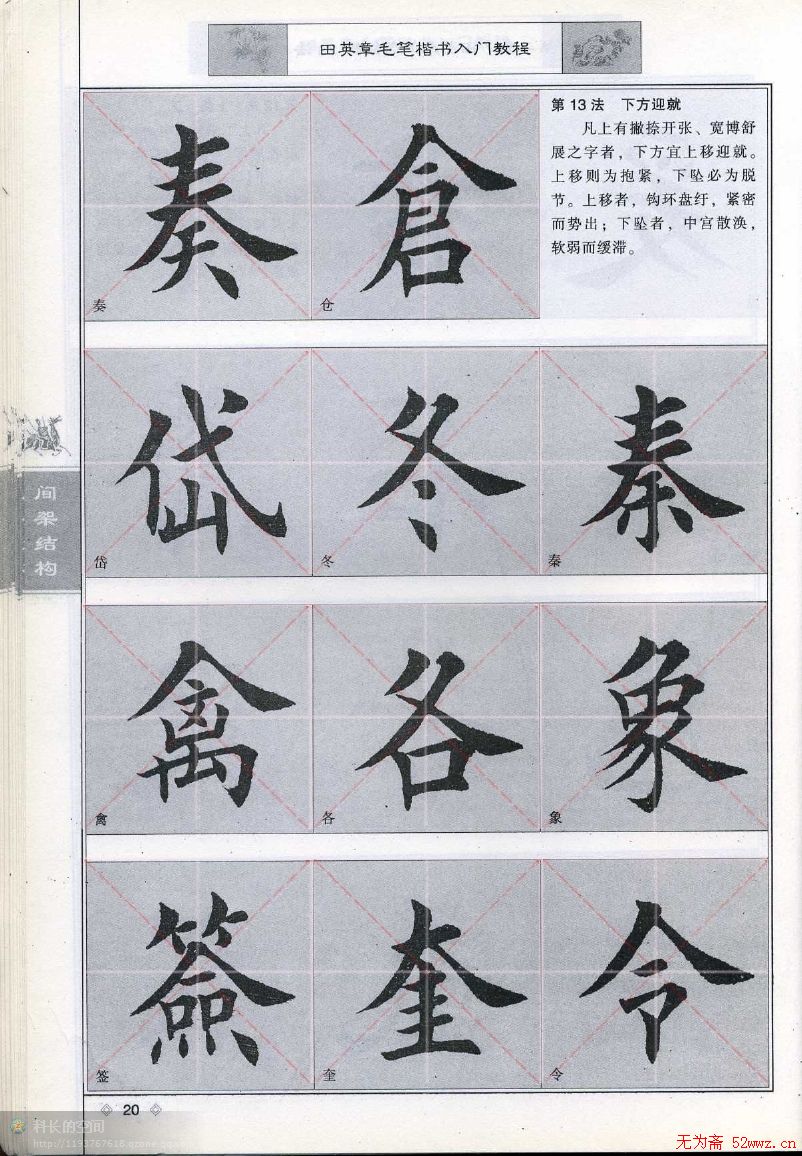 田英章毛笔楷书入门教程
奏 倉
奏 仓
第13法 下方迎就
凡上有撇捺开张、宽博舒
展之字者，下方宜上移迎就。
上移则为抱紧，下坠必为脱
节。上移者，钩环盘纡，紧密
而势出；下坠者，中宫散涣，
软弱而缓滞。
岱 冬 秦
岱 冬 秦
间架结构
禽 各 象
禽 各 象
簽 奎 令
签 奎 令
20
科长的空间
http://1193767618.qzone.qq.
无为斋 52wwz.cn